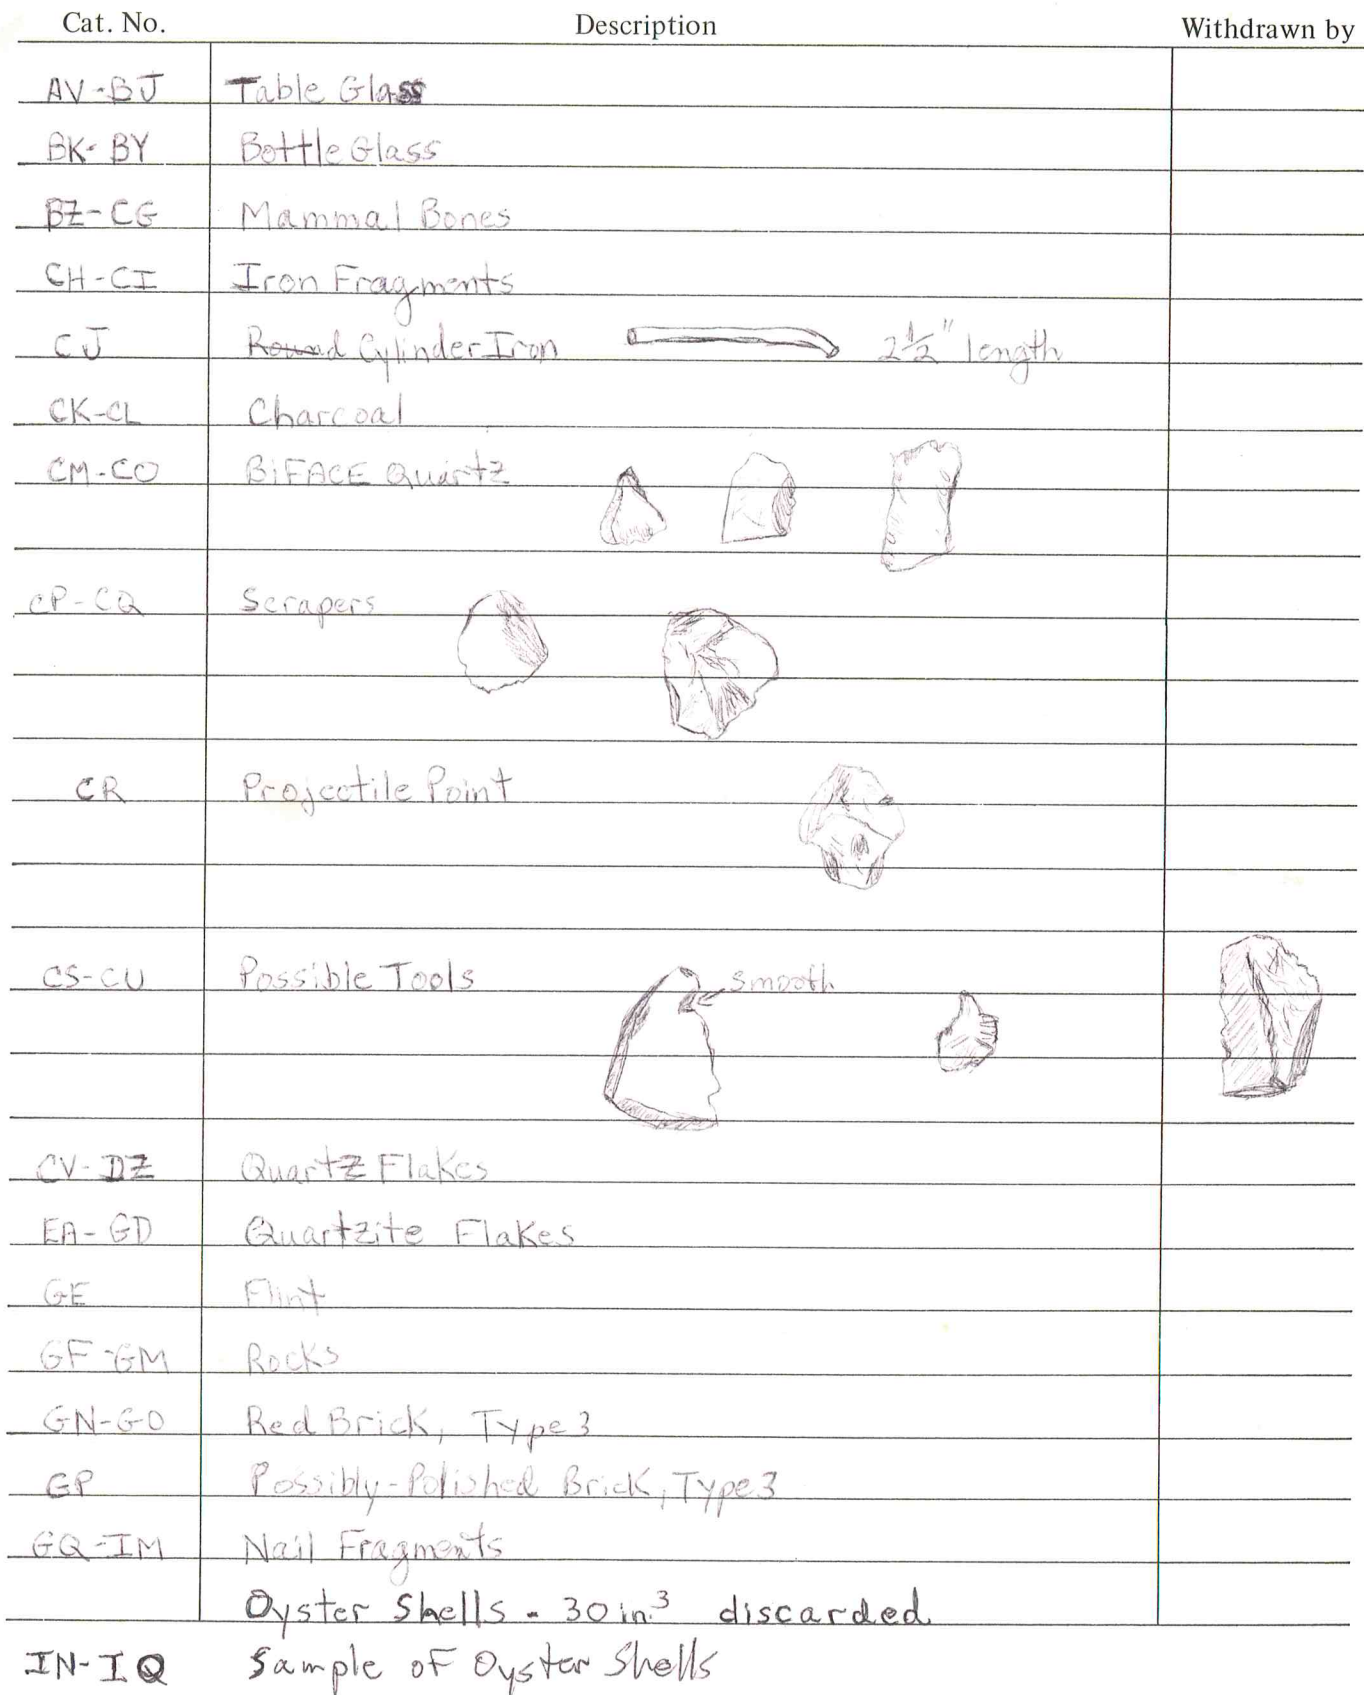 Cat. No. Description Withdrawn by
AV-BJ Table Glass
BK-BY Bottle Glass
BZ-CG Mammal Bones
CH-CI Iron Fragments
CJ Round Cylinder Iron 2½" length
CK-CL Charcoal
CM-CO BiFACE Quartz
CP-CQ Scrapers
CR Projectile Point
CS-CU Possible Tools smooth
CV-DZ Quartz Flakes
EA-GD Quartzite Flakes
GE Flint
GF-GM Rocks
GN-GO Red Brick, Type 3
GP Possibly-Polished Brick, Type 3
GQ-IM Nail Fragments
Oyster Shells - 30 in.³ discarded
IN-IQ Sample of Oyster Shells